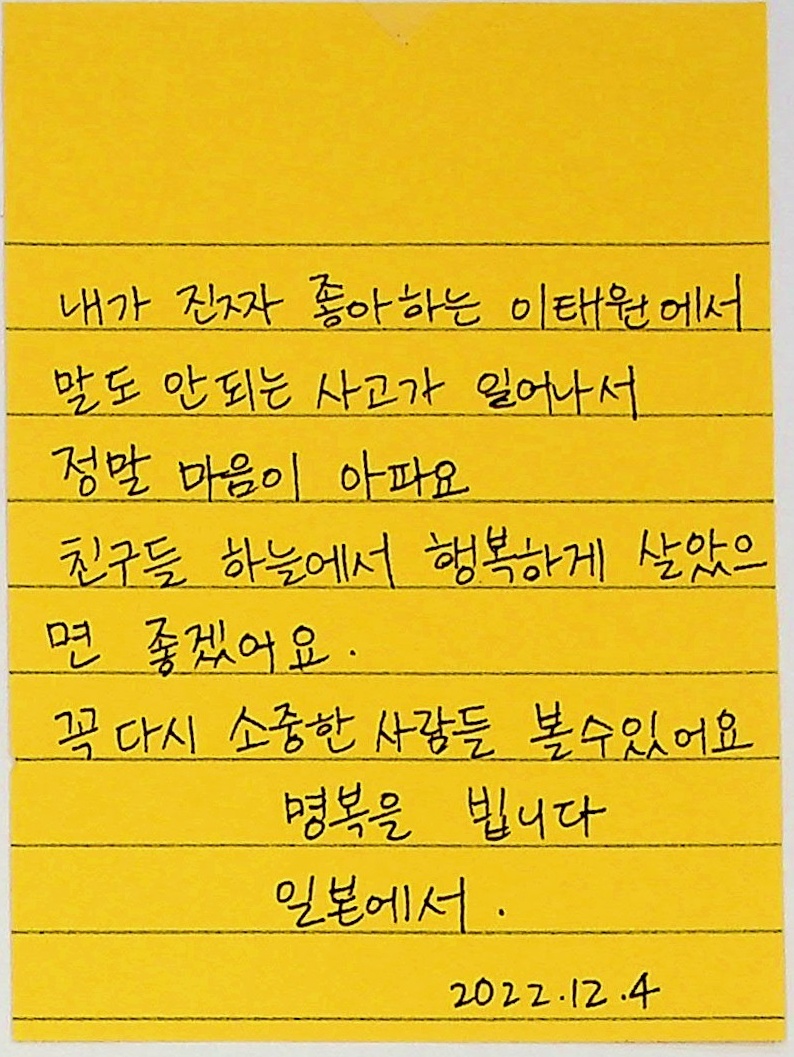 내가 진짜 좋아하는 이태원에서
말도 안되는 사고가 일어나서
정말 마음이 아파요
친구들 하늘에서 행복하게 살았으
면 좋겠어요.
꼭 다시 소중한 사람들 볼수있어요
명복을 빕니다
일본에서.
2022.12.4